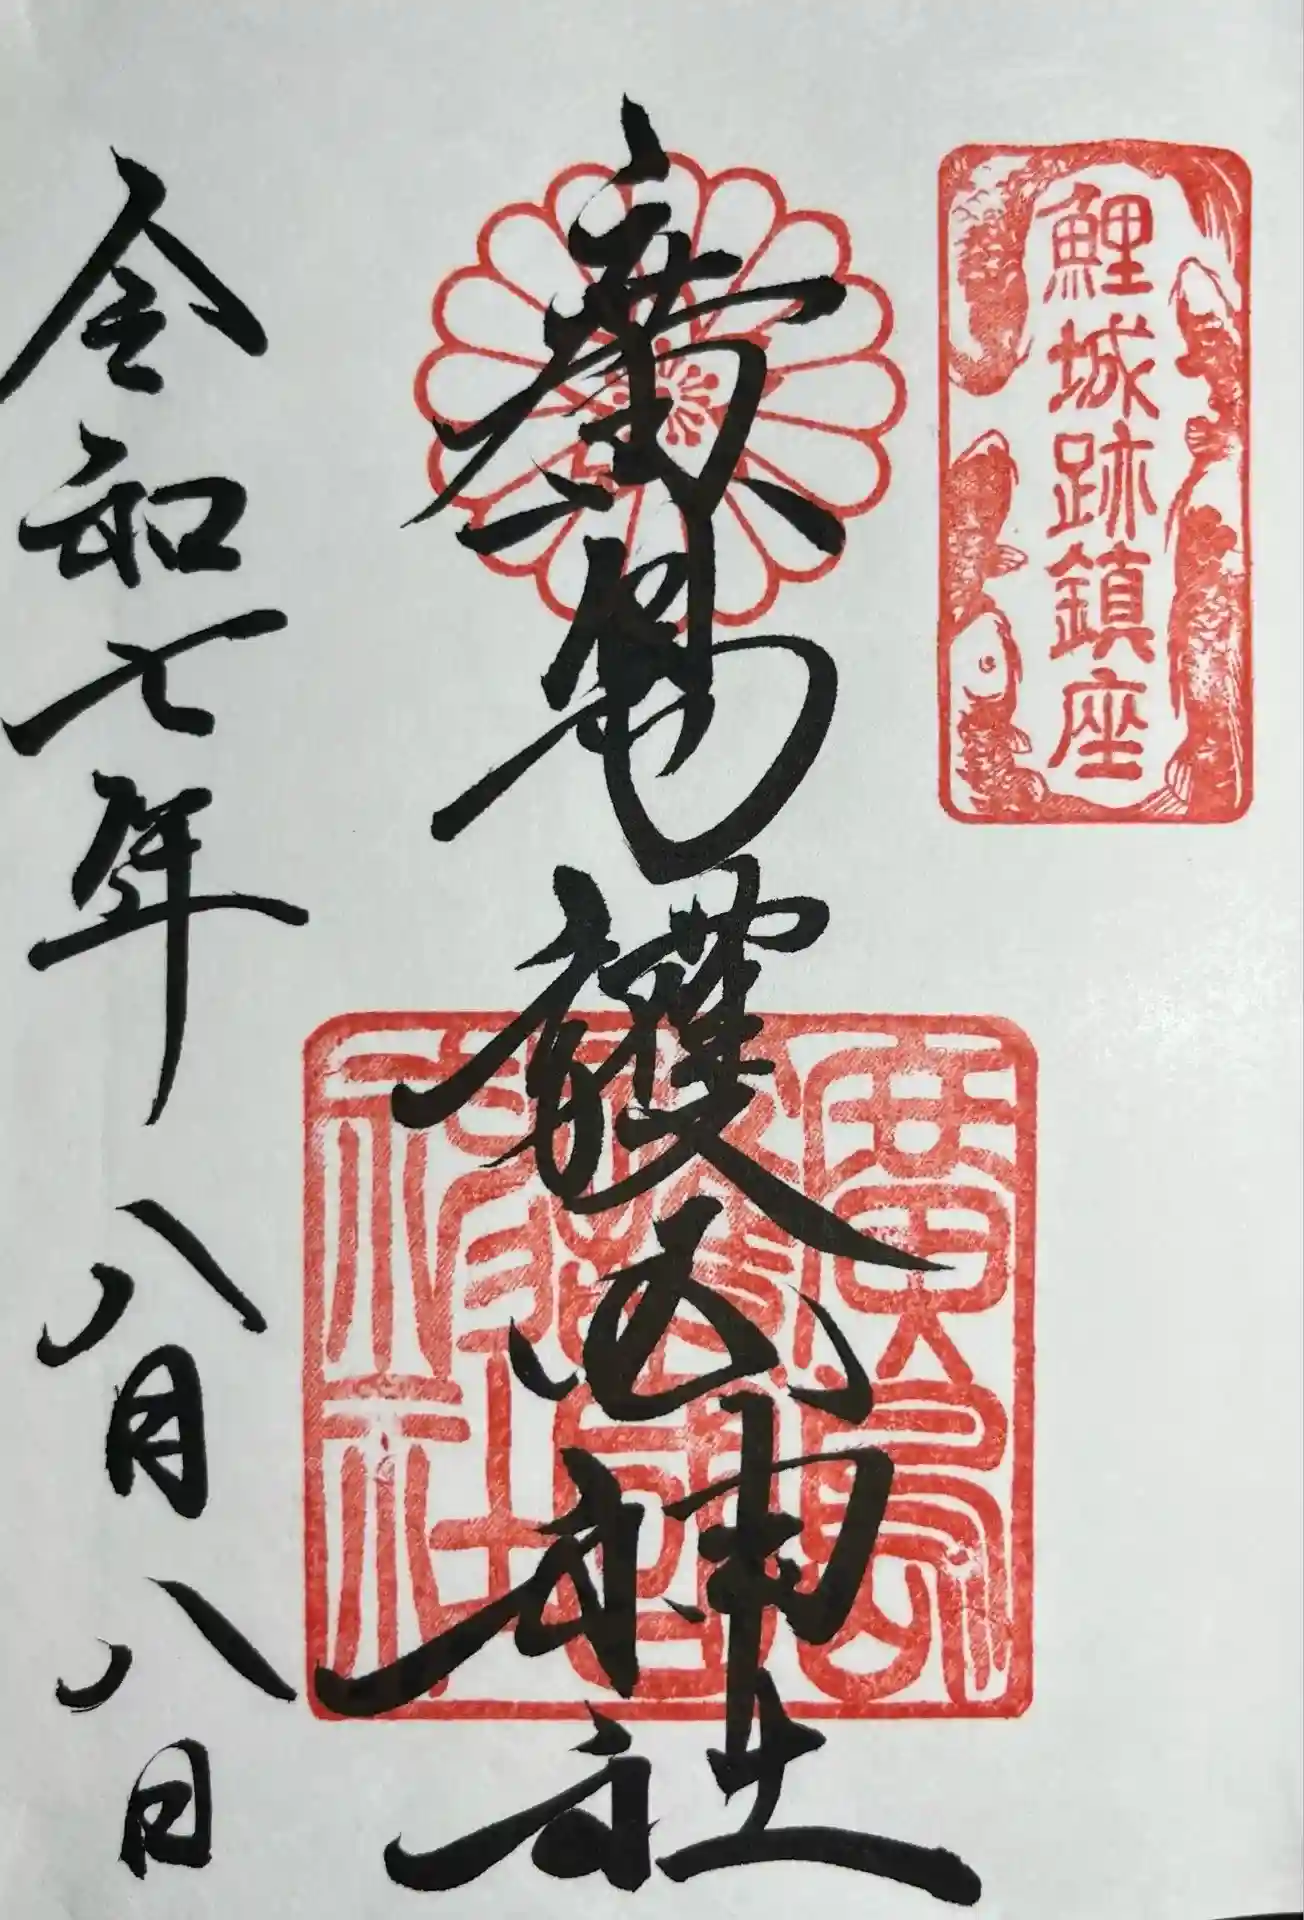 鯉城跡鎮座
廣島護國神社
廣島護國神社
令和七年八月八日